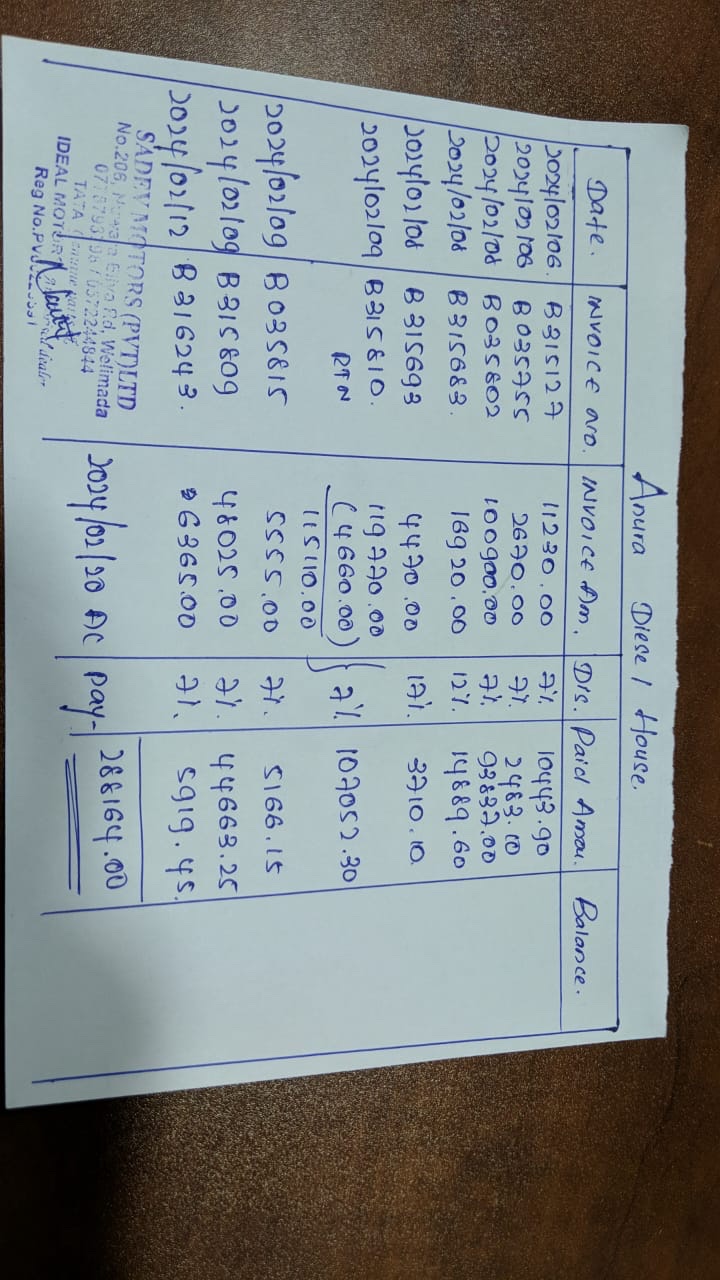 Anura Diesel House.
Date. INVOICE No. INVOICE Am. Dis. Paid Amou. Balance.
2024/02/06. B315127 11230.00 7% 10443.90
2024/02/06 B035755 2670.00 7% 2483.10
2024/02/08 B035802 100900.00 7% 93837.00
2024/02/08 B315683. 16920.00 12% 14889.60
2024/02/08 B315693 4470.00 17% 3710.10
2024/02/09 B315810. 119770.00
RTN (4660.00)
115110.00 7% 107052.30
2024/02/09 B035815 5555.00 7% 5166.15
2024/02/09 B315809 48025.00 7% 44663.25
2024/02/12 B316243. 6365.00 7% 5919.45.
2024/02/20 AC pay- 288164.00
SADEV MOTORS (PVT) LTD
No.206, Eliya Rd, Welimada
TATA
IDEAL MOTORS dealer
Reg No.PV